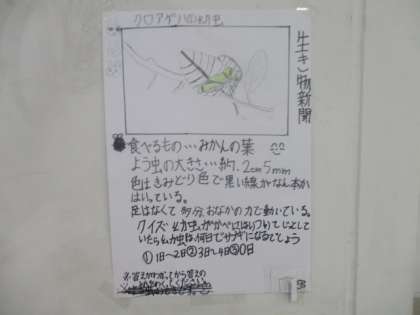 クロアゲハの幼虫
生き物新聞
食べるもの…みかんの葉
よう虫の大きさ…約.2cm5mm
色はきみどり色で黒い線がなん本か
はいっている。
足はなくて多分、おなかの力で動いている。
クイズ 幼虫がかべにはりついてじっとして
いたら幼虫は、何日でサナギになるでしょう
①1日〜2日②3日〜4日③0日
※答えがわかってから答えの